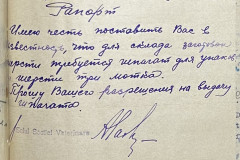 Рапорт
Имею честь поставить Вас в
известность, что для склада заготовки
шерсти требуется шпагат для упаковки
шерсти три мотка.
Прошу Вашего разрешения на выдачу
шпагата.